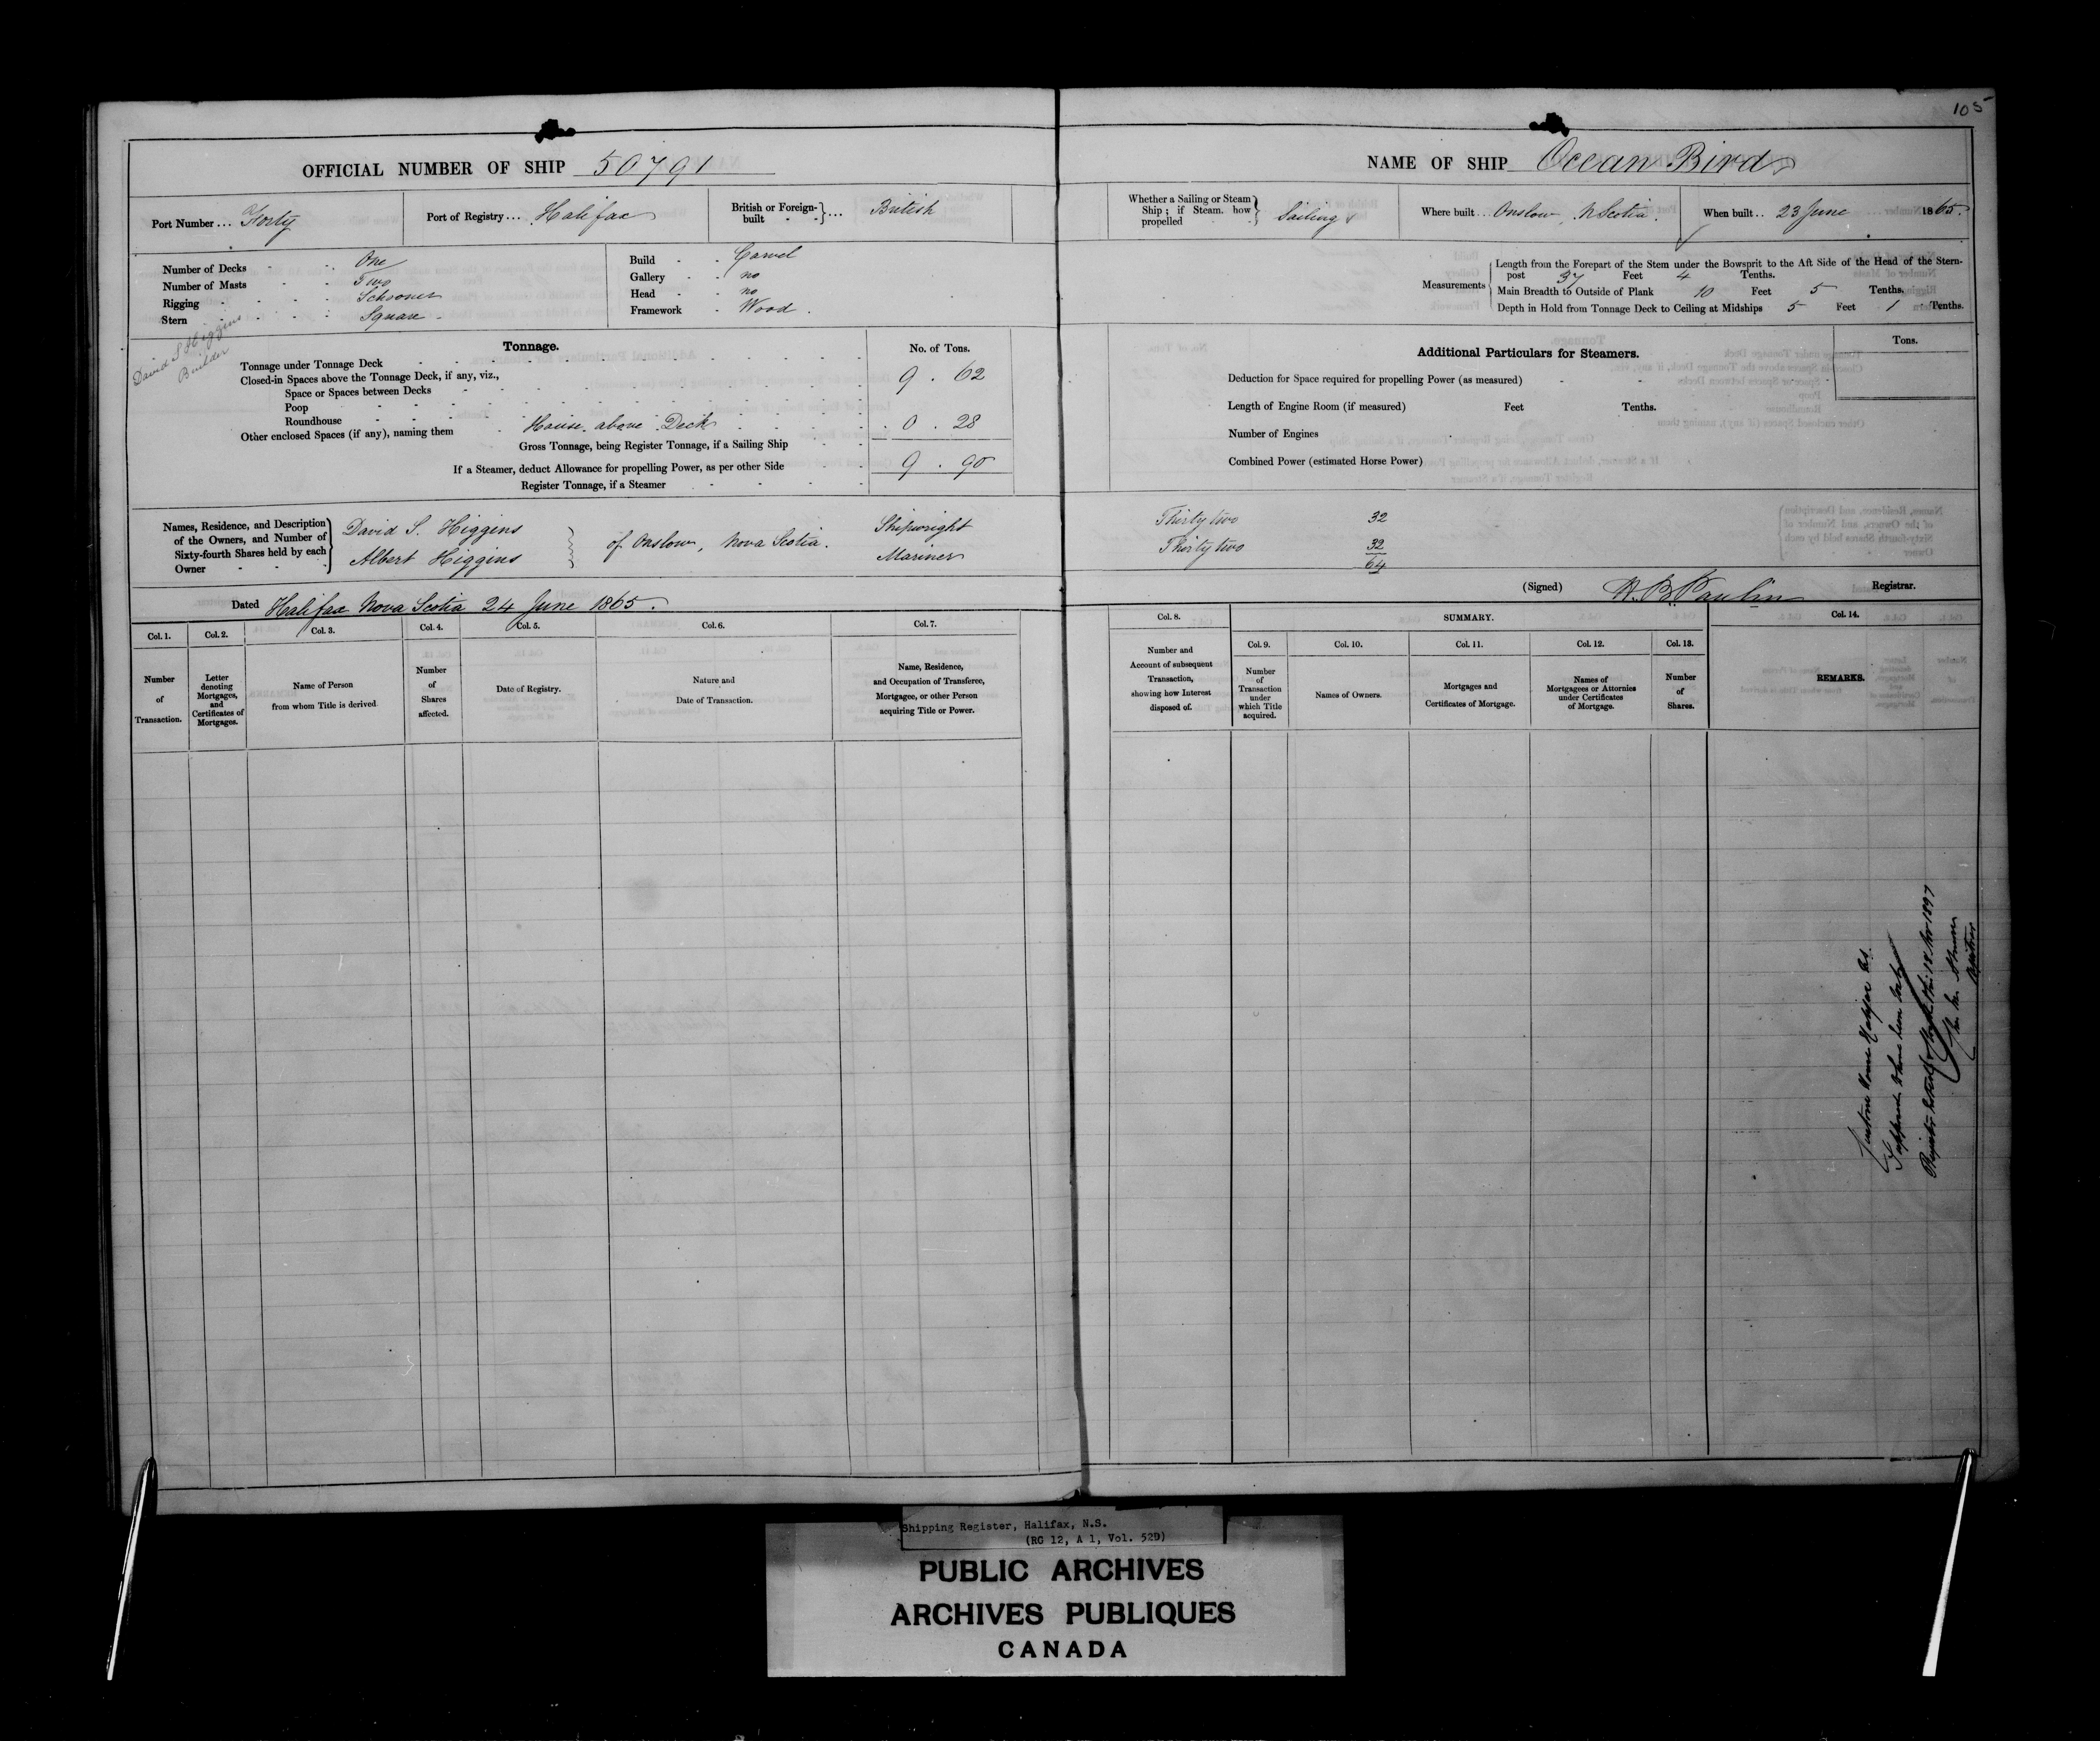 105
OFFICIAL NUMBER OF SHIP 50791
Port Number ... Forty
Port of Registry ... Halifax
British or Foreign-built } ... British
Number of Decks One
Number of Masts Two
Rigging Schooner
Stern Square
Build Carvel
Gallery no
Head no
Framework Wood
David S Higgins
Builder
Tonnage.
No. of Tons.
Tonnage under Tonnage Deck 9 . 62
Closed-in Spaces above the Tonnage Deck, if any, viz.,
Space or Spaces between Decks
Poop
Roundhouse
Other enclosed Spaces (if any), naming them House above Deck 0 . 28
Gross Tonnage, being Register Tonnage, if a Sailing Ship 9 . 90
If a Steamer, deduct Allowance for propelling Power, as per other Side
Register Tonnage, if a Steamer
Names, Residence, and Description of the Owners, and Number of Sixty-fourth Shares held by each Owner
David S. Higgins
Albert Higgins
of Onslow, Nova Scotia.
Shipwright
Mariner
Dated Halifax Nova Scotia 24 June 1865.
Col. 1. Col. 2. Col. 3. Col. 4. Col. 5. Col. 6. Col. 7.
Number of Transaction.
Letter denoting Mortgages, and Certificates of Mortgages.
Name of Person from whom Title is derived
Number of Shares affected.
Date of Registry.
Nature and Date of Transaction.
Name, Residence, and Occupation of Transferee, Mortgagee, or other Person acquiring Title or Power.
NAME OF SHIP Ocean Bird
Whether a Sailing or Steam Ship; if Steam, how propelled } Sailing
Where built .. Onslow, N Scotia.
When built .. 23 June 1865.
Measurements
Length from the Forepart of the Stem under the Bowsprit to the Aft Side of the Head of the Stern-
post 37 Feet 4 Tenths.
Main Breadth to Outside of Plank 10 Feet 5 Tenths.
Depth in Hold from Tonnage Deck to Ceiling at Midships 5 Feet 1 Tenths.
Additional Particulars for Steamers.
Tons.
Deduction for Space required for propelling Power (as measured)
Length of Engine Room (if measured) Feet Tenths.
Number of Engines
Combined Power (estimated Horse Power)
Thirty two 32
Thirty two 32
64
(Signed) Registrar.
Col. 8.
SUMMARY.
Col. 9. Col. 10. Col. 11. Col. 12. Col. 13. Col. 14.
Number and Account of subsequent Transaction, showing how Interest disposed of.
Number of Transaction under which Title acquired.
Names of Owners.
Mortgages and Certificates of Mortgage.
Names of Mortgagees or Attornies under Certificates of Mortgage.
Number of Shares.
REMARKS.
this 18 Nov 1897
Shipping Register, Halifax, N.S.
(RG 12, A 1, Vol. 529)
PUBLIC ARCHIVES
ARCHIVES PUBLIQUES
CANADA